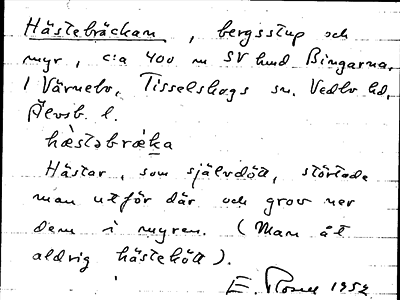 Hästebräckan, bergsstup och
myr, c:a 400 m SV hmd Bingarna,
i Värnebo, Tisselskogs sn. Vedbo hd.
Älvsb. l.
hæ̀stəbræ̀ka
Hästar, som självdött, störtade
man utför där och grov ner
dem i myren. (Man åt
aldrig hästkött).
E. Rosell 1952